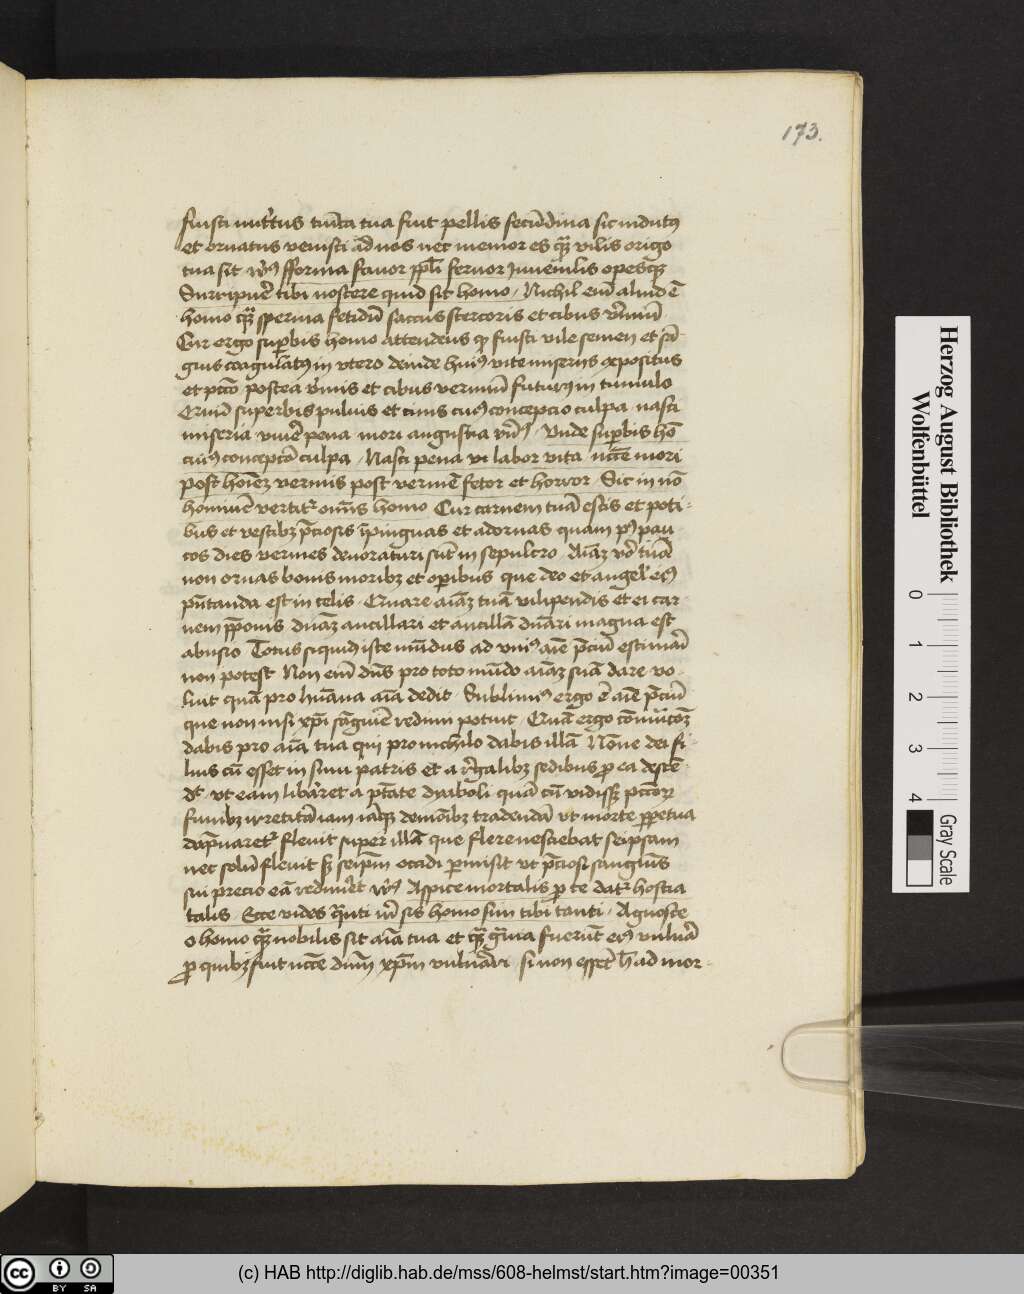 173.
fuisti nutritus tunica tua fuit pellis secundina sic indutus
et ornatus venisti ad nos nec memor es quam vilis origo
tua sit vers9 fforma favor ppli fervor Juvenilis opesque
Surripuere tibi noscere quid sit homo / Nichil eni aliud e
homo quam sperma fetidu saccus stercoris et cibus vermiu
Cur ergo superbis homo attendens quod fuisti vile semen et san
guis coagulatus in utero deinde huius vite miseriis expositus
et pcto postea vermis et cibus vermiu futurus in tumulo
Cur superbis pulvis et cinis cuius concepcio culpa nasci
miseria vivere pena mori angustia vers9 / Unde superbis ho
cuius concepcio culpa / Nasci pena vt labor vita necce mori
post hoiez vermis post verme fetor et horror Sic in no
homine vertitur omnis homo Cur carnem tua escis et poti-
bus et vestibz preciosis inpinguas et adornas quam post pau
cos dies vermes devoraturi sunt in sepulcro Aiaz vero tua
non ornas bonis moribz et operibus que deo et angelis eius
pntanda est in celis Quare aiaz tua vilipendis et ei car
nem pponis dnaz ancillari et ancilla dnari magna est
abusio Totus siquidem iste mundus ad unius aie preciu estimari
non potest Non eni dns pro toto mundo aiaz sua dare vo
luit qua pro humana aia dedit Sublimius ergo e aie preciu
que non nisi xpi sanguine redimi potuit Qua ergo comutacoz
dabis pro aia tua qui pro nichilo dabis illa Nonne dei fi
lius cu esset in sinu patris et a regalibz sedibus pro ea desce
dit vt eam liberaret a potestate dyaboli qua cu vidisset pctorum
funibz irretita iam iamque demonibz tradenda vt morte perpetua
dapnaretur flevit super illa que flere nesciebat seipsam
nec solu flevit sed seipm occidi permisit vt preciosi sanguinis
sui precio ea redimeret vers9 Aspice mortalis pro te datur hostia
talis Ecce vides quanti sis homo fim tibi tanti Agnosce
o homo quam nobilis sit aia tua et quam gravia fuerut eius vulnera
pro quibz fuit necce dum xpm vulnerari si non essent hec ad mor-
Herzog August Bibliothek
Wolfenbüttel
0 1 2 3 4
Gray Scale
cc BY SA
(c) HAB http://diglib.hab.de/mss/608-helmst/start.htm?image=00351